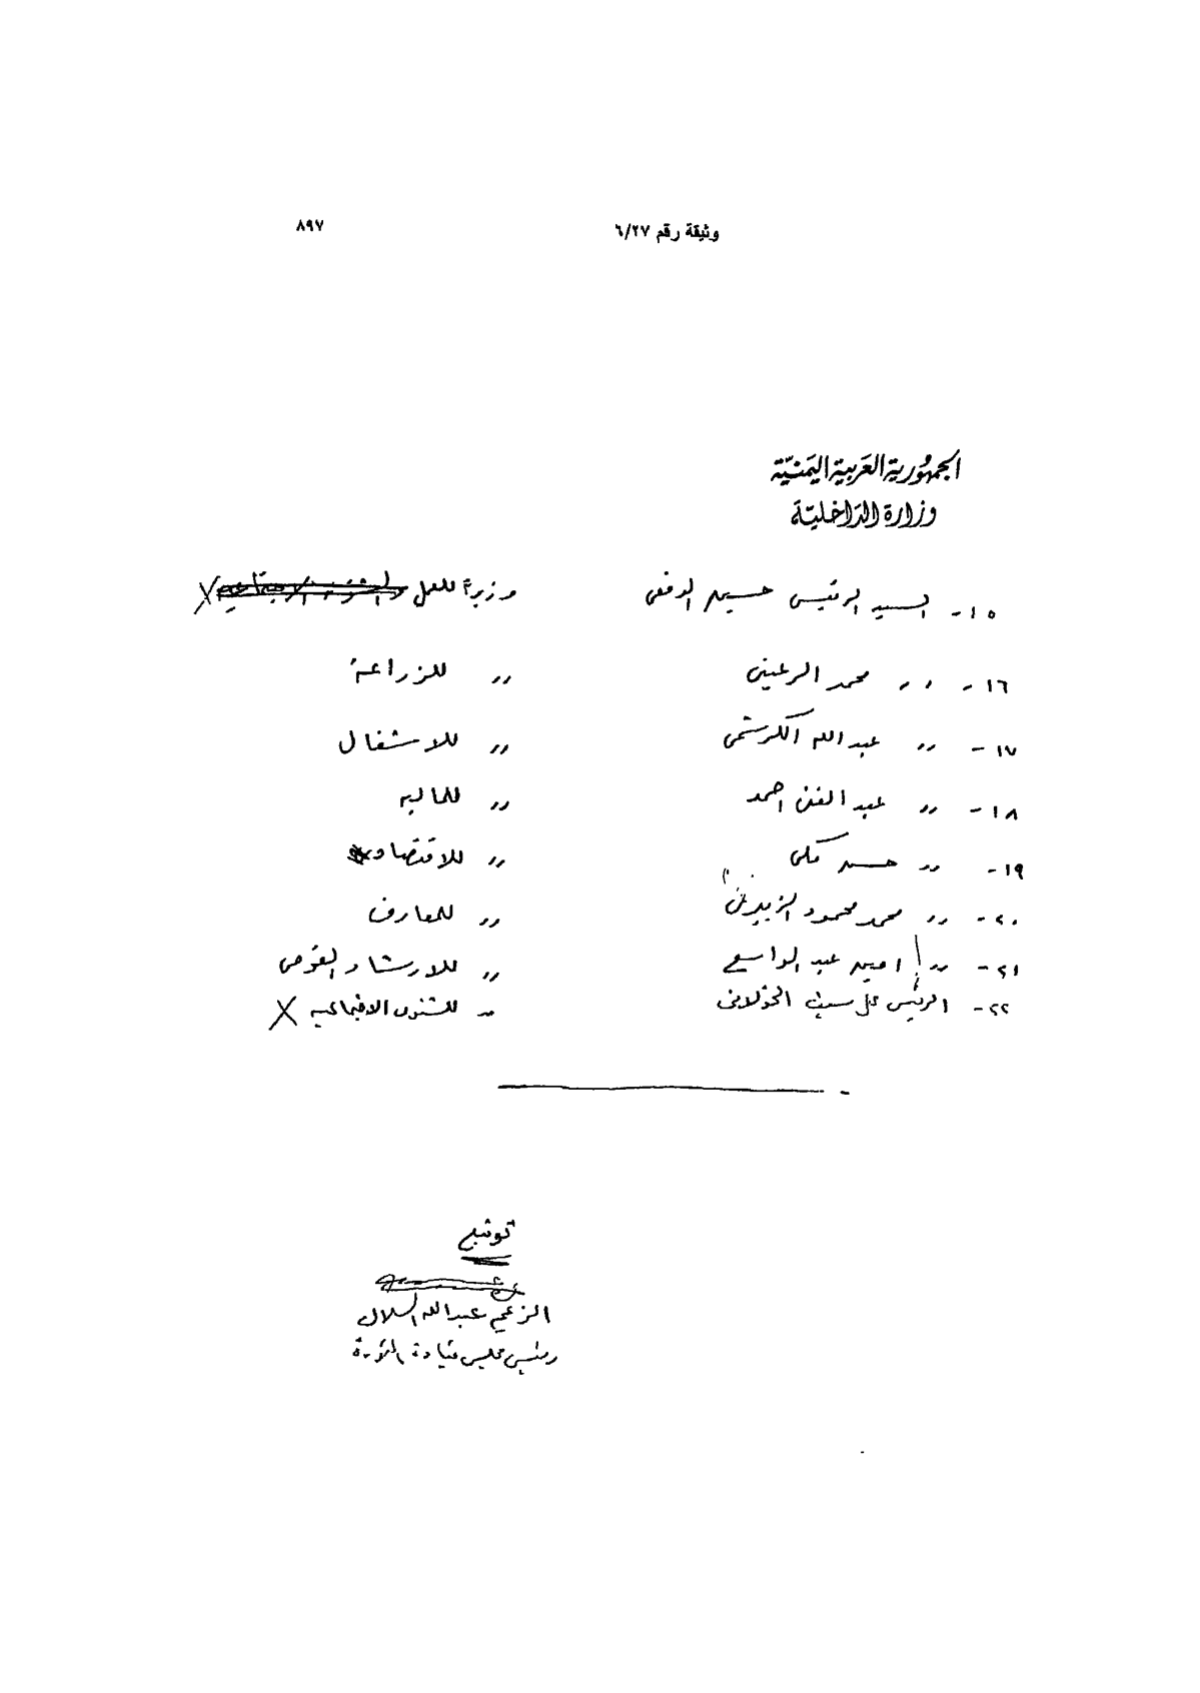 وثيقة رقم ٦/٢٧ ٨٩٧
الجمهورية العربية اليمنية
وزارة الداخلية
١٥- السيد الرئيس حسين الدفعي وزيرا للعمل والشئون الاجتماعية X
١٦- ,, محمد الرعيني ,, للزراعة
١٧- ,, عبد الله الكرشمي ,, للاشغال
١٨- ,, عبد الغني احمد ,, للماليه
١٩- ,, حسن مكي ,, للاقتصاد
٢٠- ,, محمد محمود الزبيري ,, للمعارف
٢١- ,, امين عبد الواسع ,, للارشاد القومي
٢٢- الرئيس علي سيف الخولاني ,, للشئون الاجتماعيه X
توقيع
الزعيم عبد الله السلال
رئيس مجلس قيادة الثورة